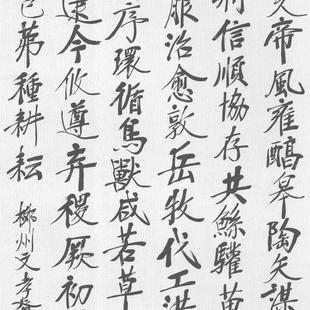 帝風雍醕皋陶矢謀
信順協存共鯀驩
服治愈敦岳牧代工洪
序環循鳥獸咸若草
逮今攸遵弃稷厥初
種耕耘
柳州文孝